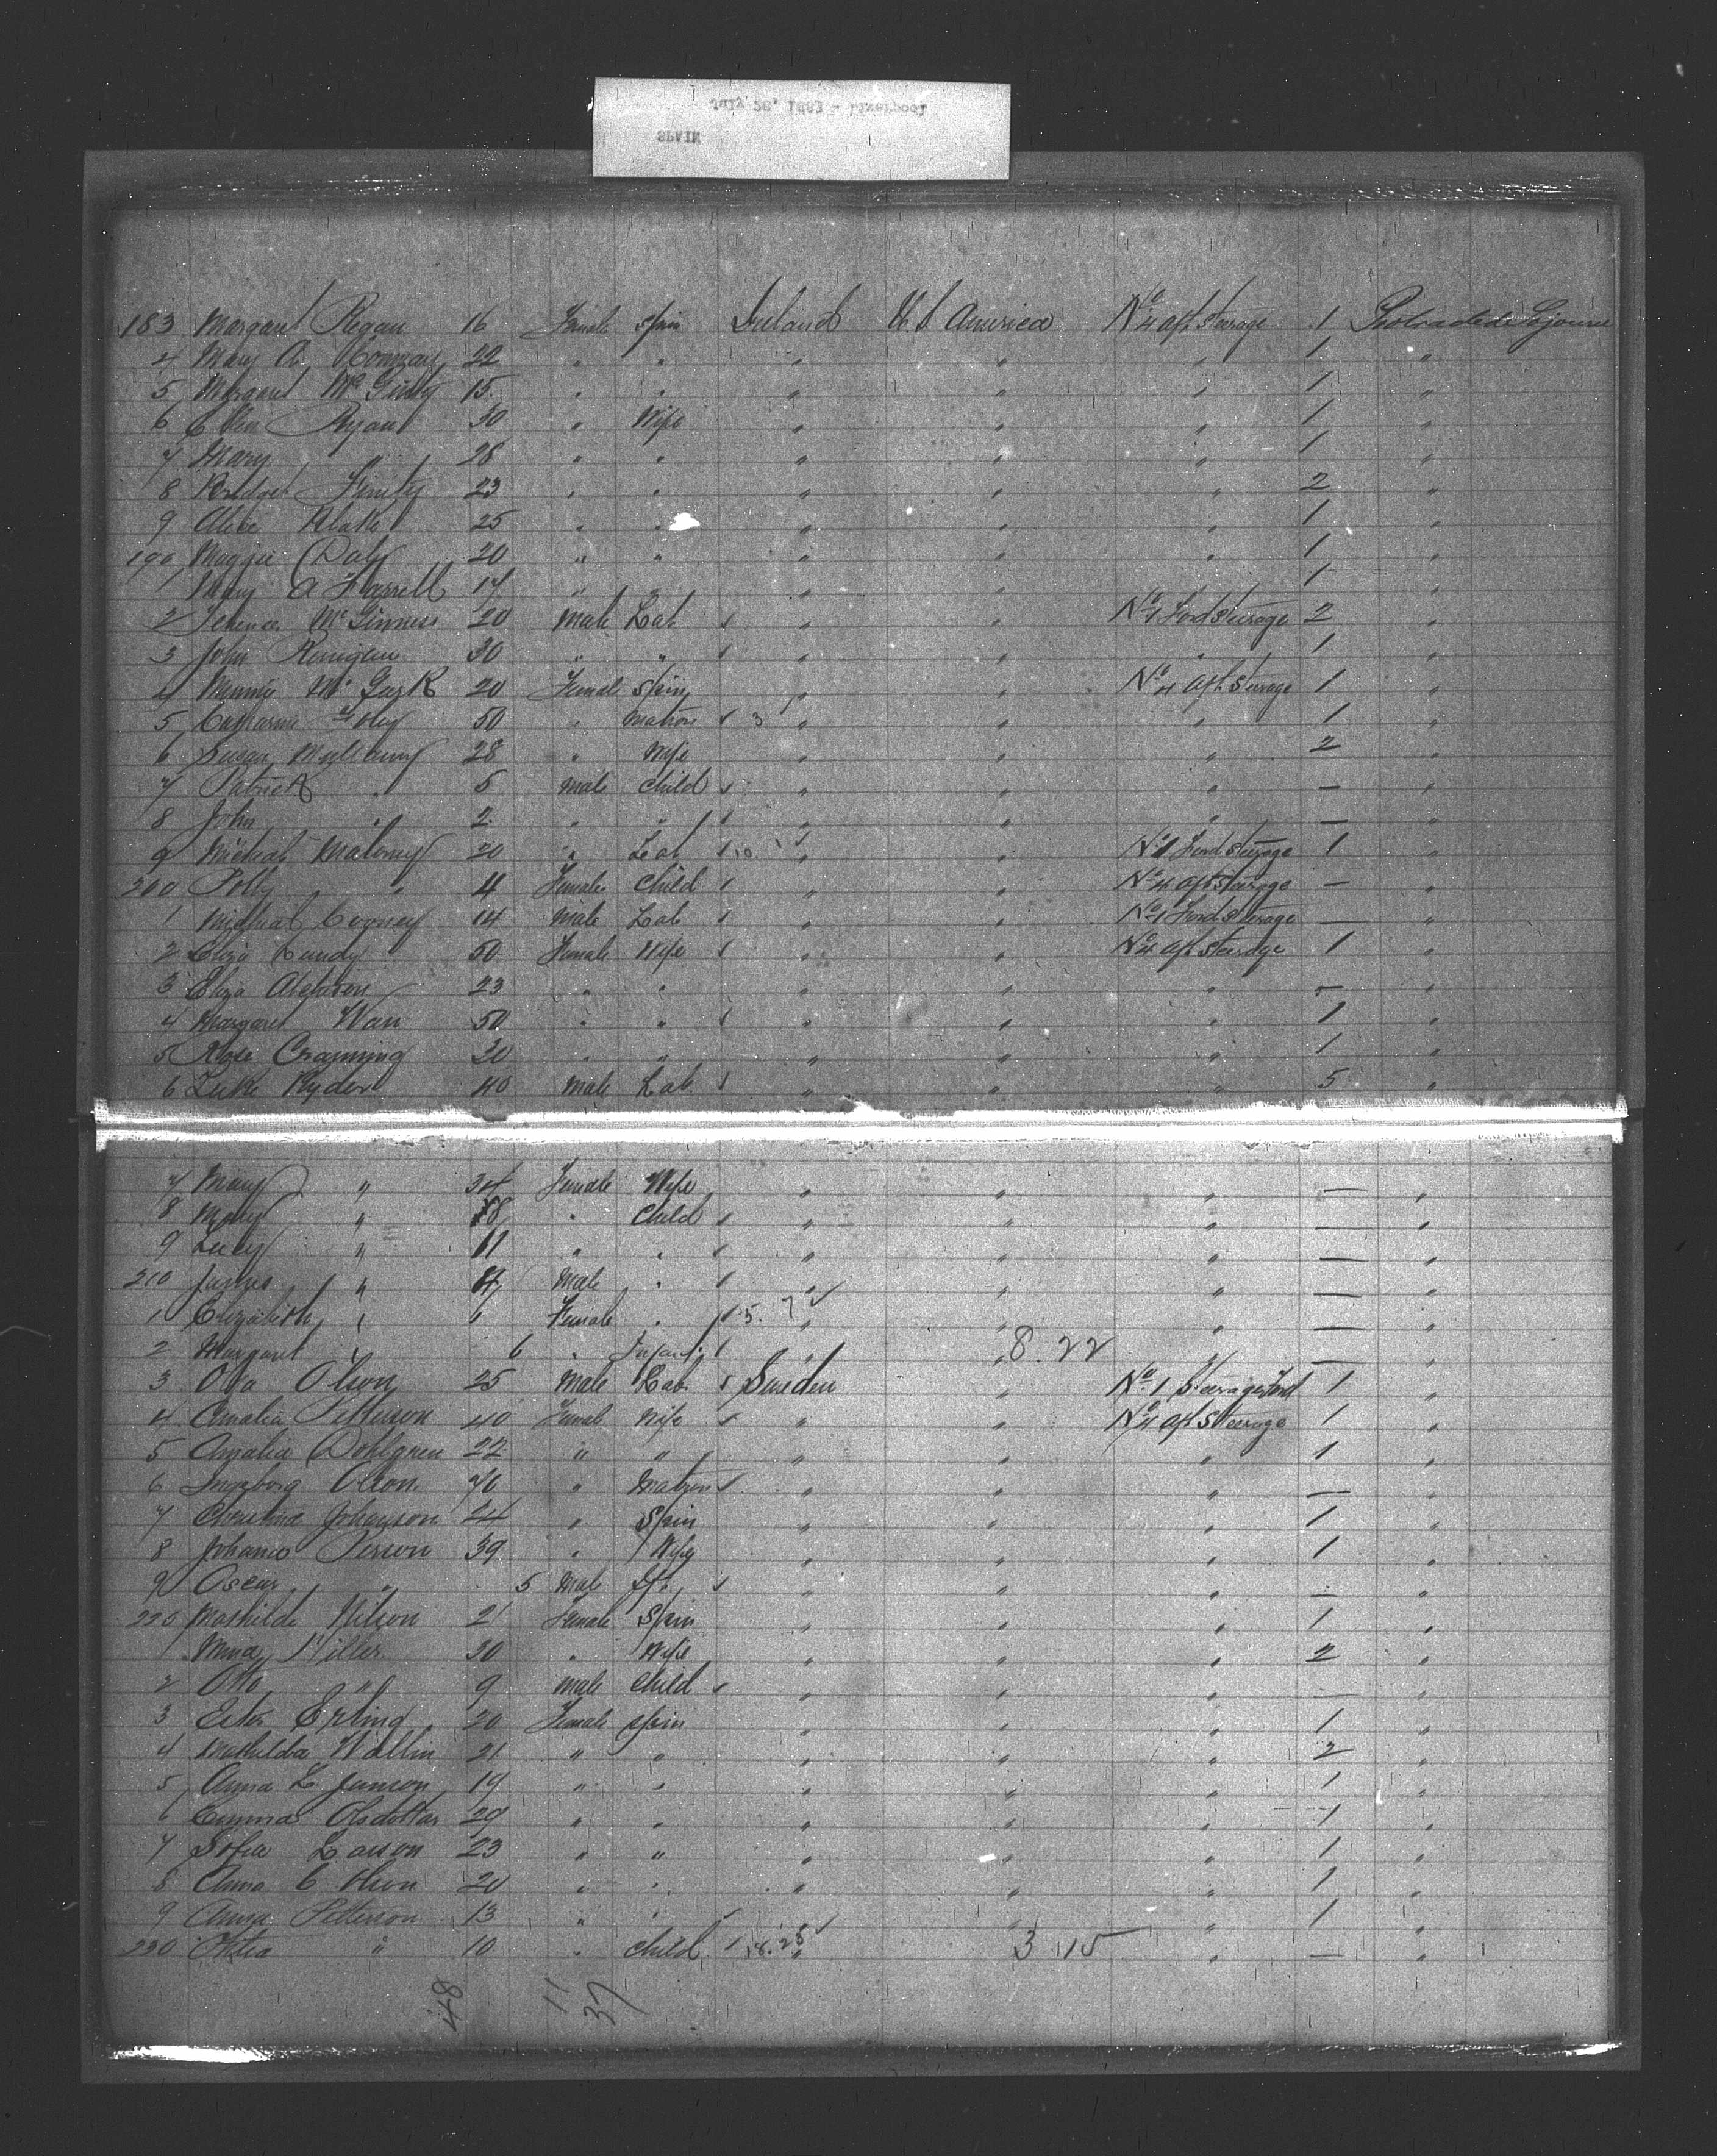 July 28, 1883 - Liverpool
SPAIN
183 Margaret Regan 16 Female Spin Ireland U S America No 4 aft steerage 1 Protracted Sojourn
4 Mary A 22 " " " " " 1 "
5 Margaret 15 " " " " " 1 "
6 Ellen Ryan 30 " Wife " " " 1 "
7 Mary " 28 " " " " " 1 "
8 Bridget 23 " " " " " 2 "
9 Alice Blake 25 " " " " " 1 "
190 Maggie Daly 20 " " " " " 1 "
1 Mary A Farrell 17 " " " " " 1 "
2 Terence McGinness 20 Male Lab " " No 1 Ford Steerage 2 "
3 John 30 " " " " " 1 "
4 Minnie McGurk 20 Female Spin " " No 4 aft Steerage 1 "
5 Catharine Foley 50 " Matron 3 " " " 1 "
6 Susan 28 " Wife " " " 2 "
7 Patrick " 5 Male Child " " " — "
8 John " 2 " " " " " — "
9 Micheal Maloney 20 " Lab 10 1 " " No 1 Ford Steerage 1 "
200 Polly " 4 Female Child " " No 4 aft Steerage — "
1 Micheal Cooney 14 Male Lab " " No 1 Ford Steerage — "
2 Eliza 50 Female Wife " " No 4 aft Steerage 1 "
3 Eliza 23 " " " " " — "
4 Margaret 50 " " " " " 1 "
5 Rose 30 " " " " " 1 "
6 Luke Ryder 40 Male Lab " " " 5 "
7 Mary " 34 Female Wife " " " — "
8 Mary " " Child " " " — "
9 Lucy " 11 " " " " " — "
210 James " Male " " " " — "
1 Elizabeth " 6 Female " 5. 7 " " " — "
2 Margaret " 6 " Infant " " 8.22 " — "
3 Olson 25 Male Lab Sweden " No 1 Steerage Ford 1 "
4 Amalia Petterson 40 Female Wife " " No 4 aft Steerage 1 "
5 Amalia Dohlgren 22 " " " " " 1 "
6 Ingeborg Olson 70 " Matron " " " — "
7 Christina Johanson 24 " Spin " " " 1 "
8 Person 39 " Wife " " " 1 "
9 Oscar " 5 Male " " " — "
220 Mathilde Nilson 21 Female Spin " " " 1 "
1 30 " Wife " " " 2 "
2 Otto " 9 Male Child " " " — "
3 20 Female Spin " " " 1 "
4 Mathilda Wallin 21 " " " " " 2 "
5 Anna L Janson 19 " " " " " 1 "
6 Emma Olsdotter 29 " " " " " 1 "
7 Sofia Larson 23 " " " " " 1 "
8 Anna C Olson 20 " " " " " 1 "
9 Anna Petterson 13 " " " " " 1 "
230 " 10 " Child 18.25 " 3 15 " — "
48 11 37